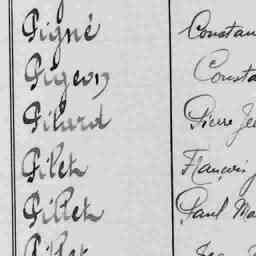 Pigné Constan
Pigeon Consta
Pilard Pierre Je
Pilet François J
Pillet Paul Ma
Pillet Jean